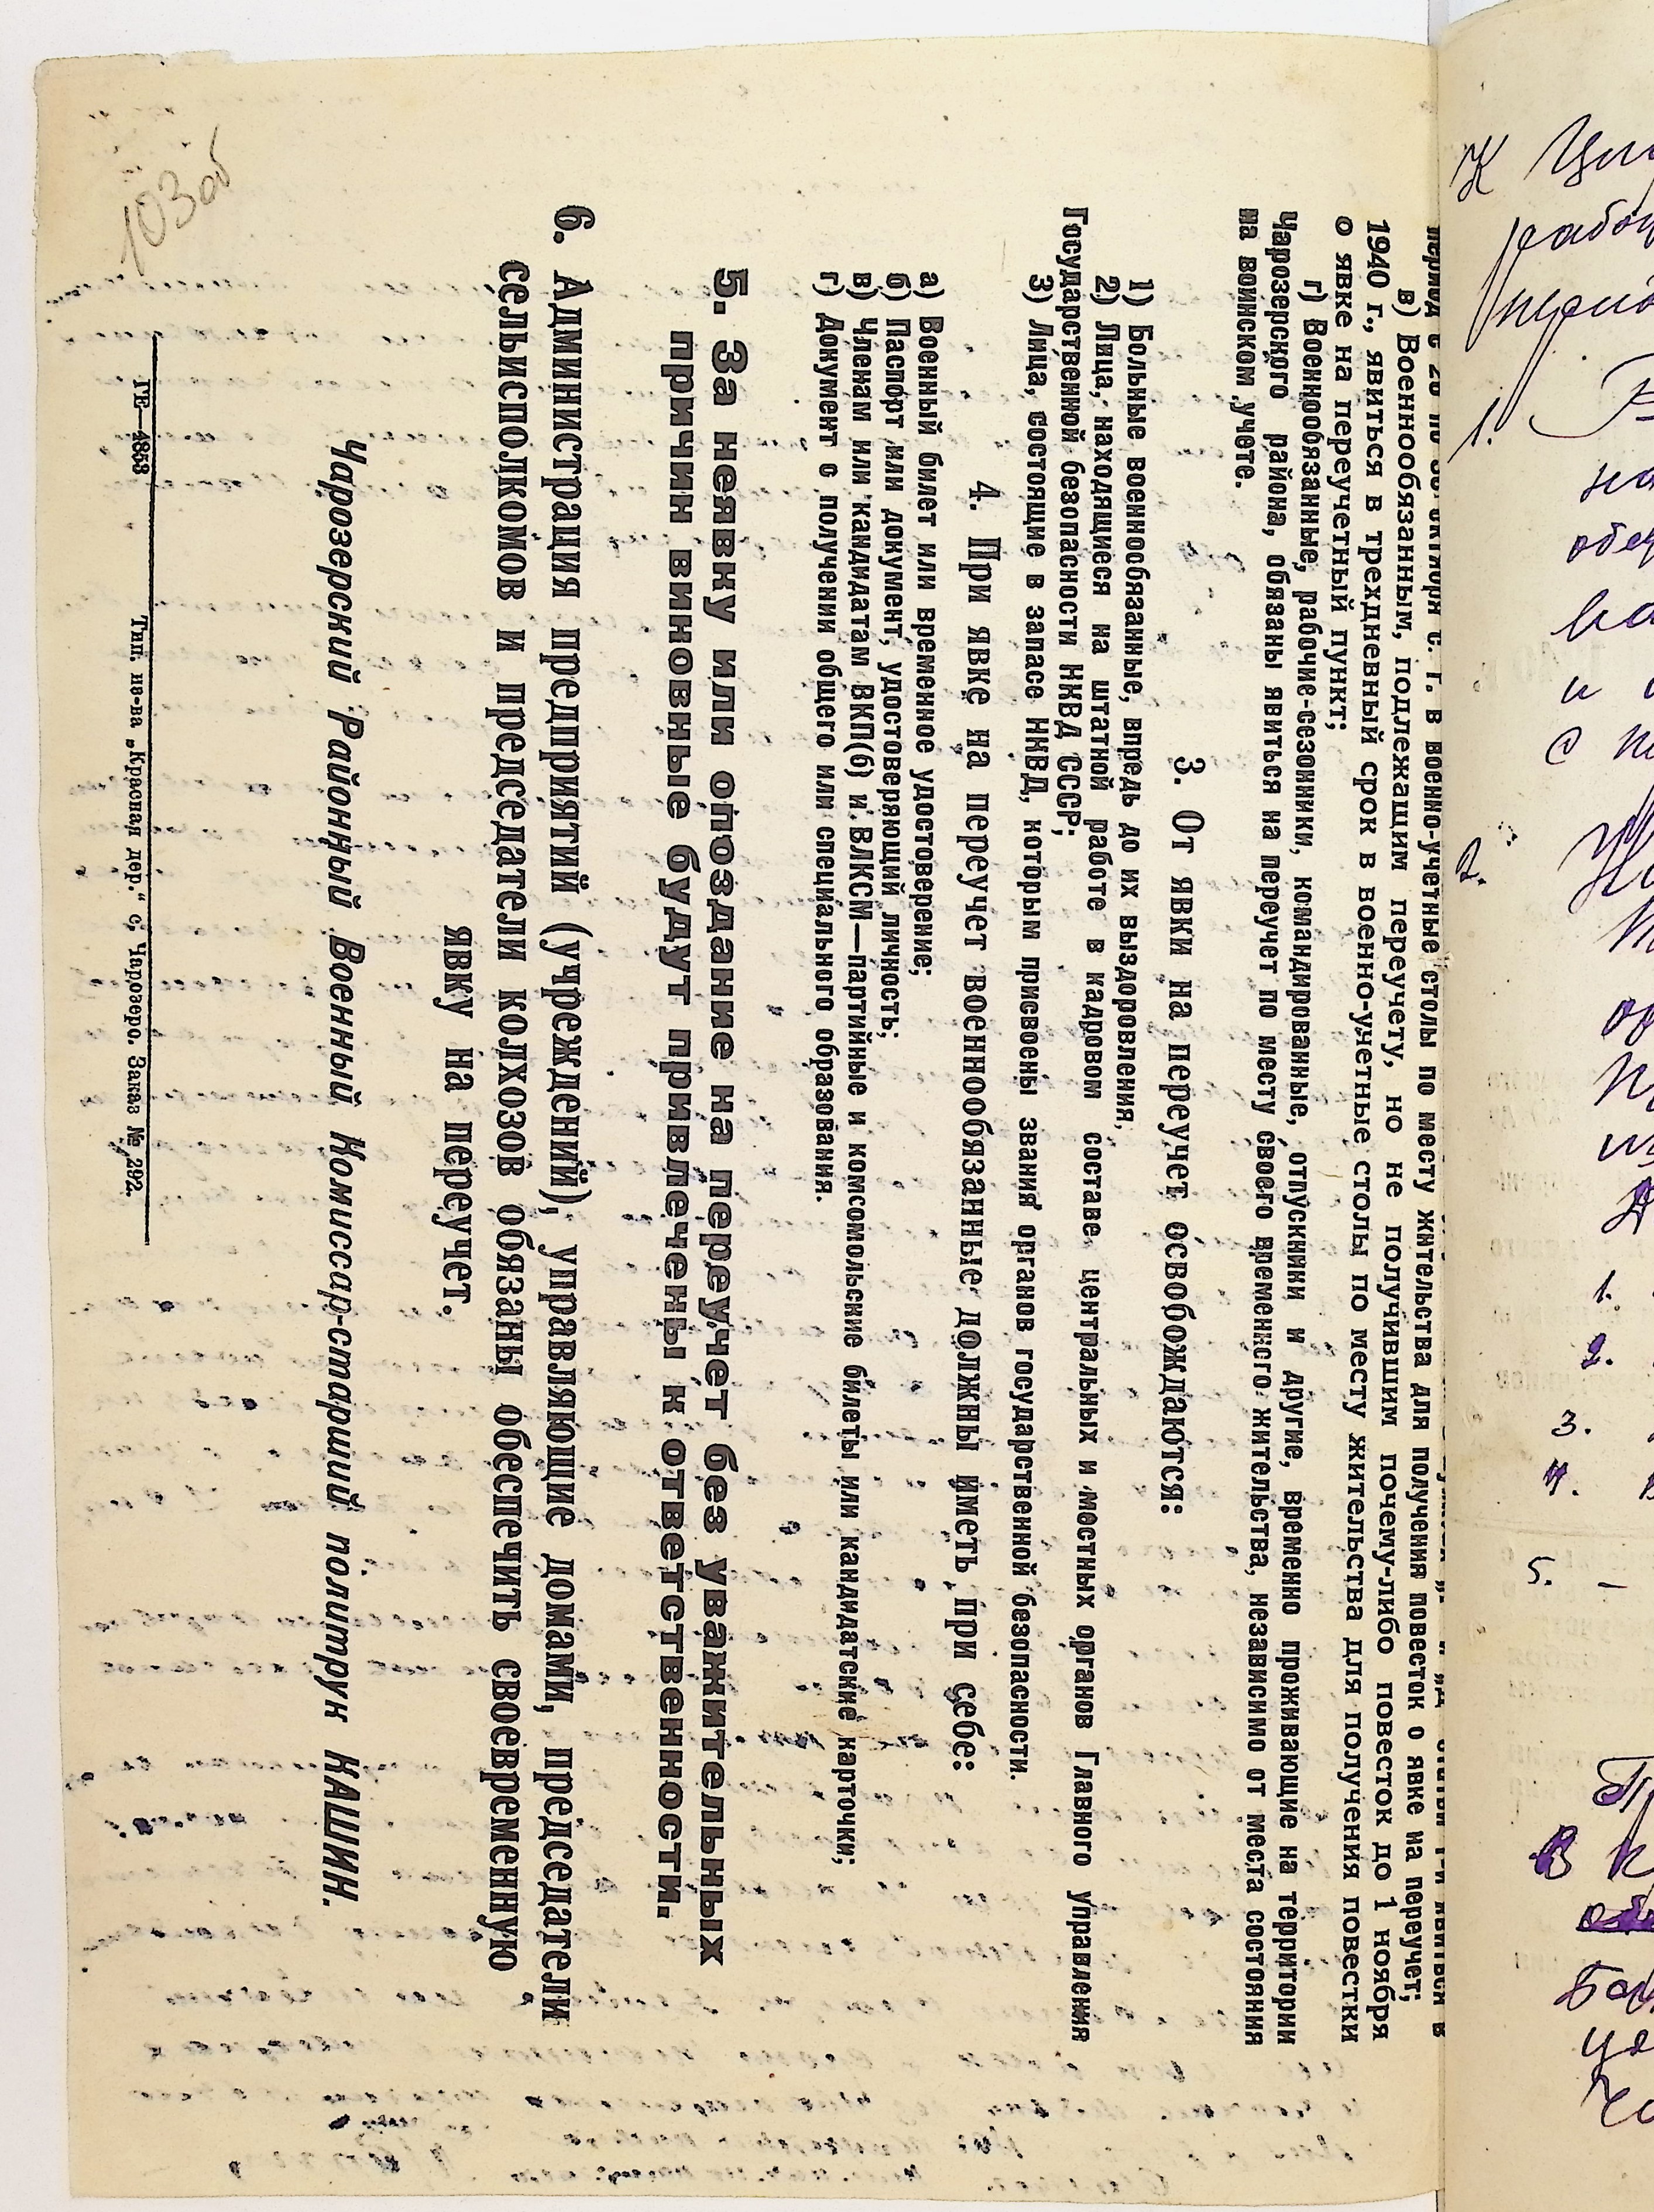 103об
в) Военнообязанным, подлежащим переучету, но не получившим почему-либо повесток до 1 ноября
1940 г., явиться в трехдневный срок в военно-учетные столы по месту жительства для получения повестки
о явке на переучетный пункт;
г) Военнообязанные, рабочие-сезонники, командированные, отпускники и другие, временно проживающие на территории
Чарозерского района, обязаны явиться на переучет по месту своего временного жительства, независимо от места состояния
на воинском учете.
3. От явки на переучет освобождаются:
1) Больные военнообязанные, впредь до их выздоровления,
2) Лица, находящиеся на штатной работе в кадровом составе центральных и местных органов Главного управления
Государственной безопасности НКВД СССР;
3) Лица, состоящие в запасе НКВД, которым присвоены звания органов государственной безопасности.
4. При явке на переучет военнообязанные должны иметь при себе:
а) Военный билет или временное удостоверение;
б) Паспорт или документ, удостоверяющий личность;
в) Членам или кандидатам ВКП(б) и ВЛКСМ—партийные и комсомольские билеты или кандидатские карточки;
г) Документ о получении общего или специального образования.
5. За неявку или опоздание на переучет без уважительных
причин виновные будут привлечены к ответственности.
6. Администрация предприятий (учреждений), управляющие домами, председатели
сельисполкомов и председатели колхозов обязаны обеспечить своевременную
явку на переучет.
Чарозерский Районный Военный Комиссар-старший политрук КАШИН.
ГЕ—4853 Тип. из-ва „Красная дер.“ с. Чарозеро. Заказ № 292.
К
1.
2.
1.
2.
3.
4.
5. –